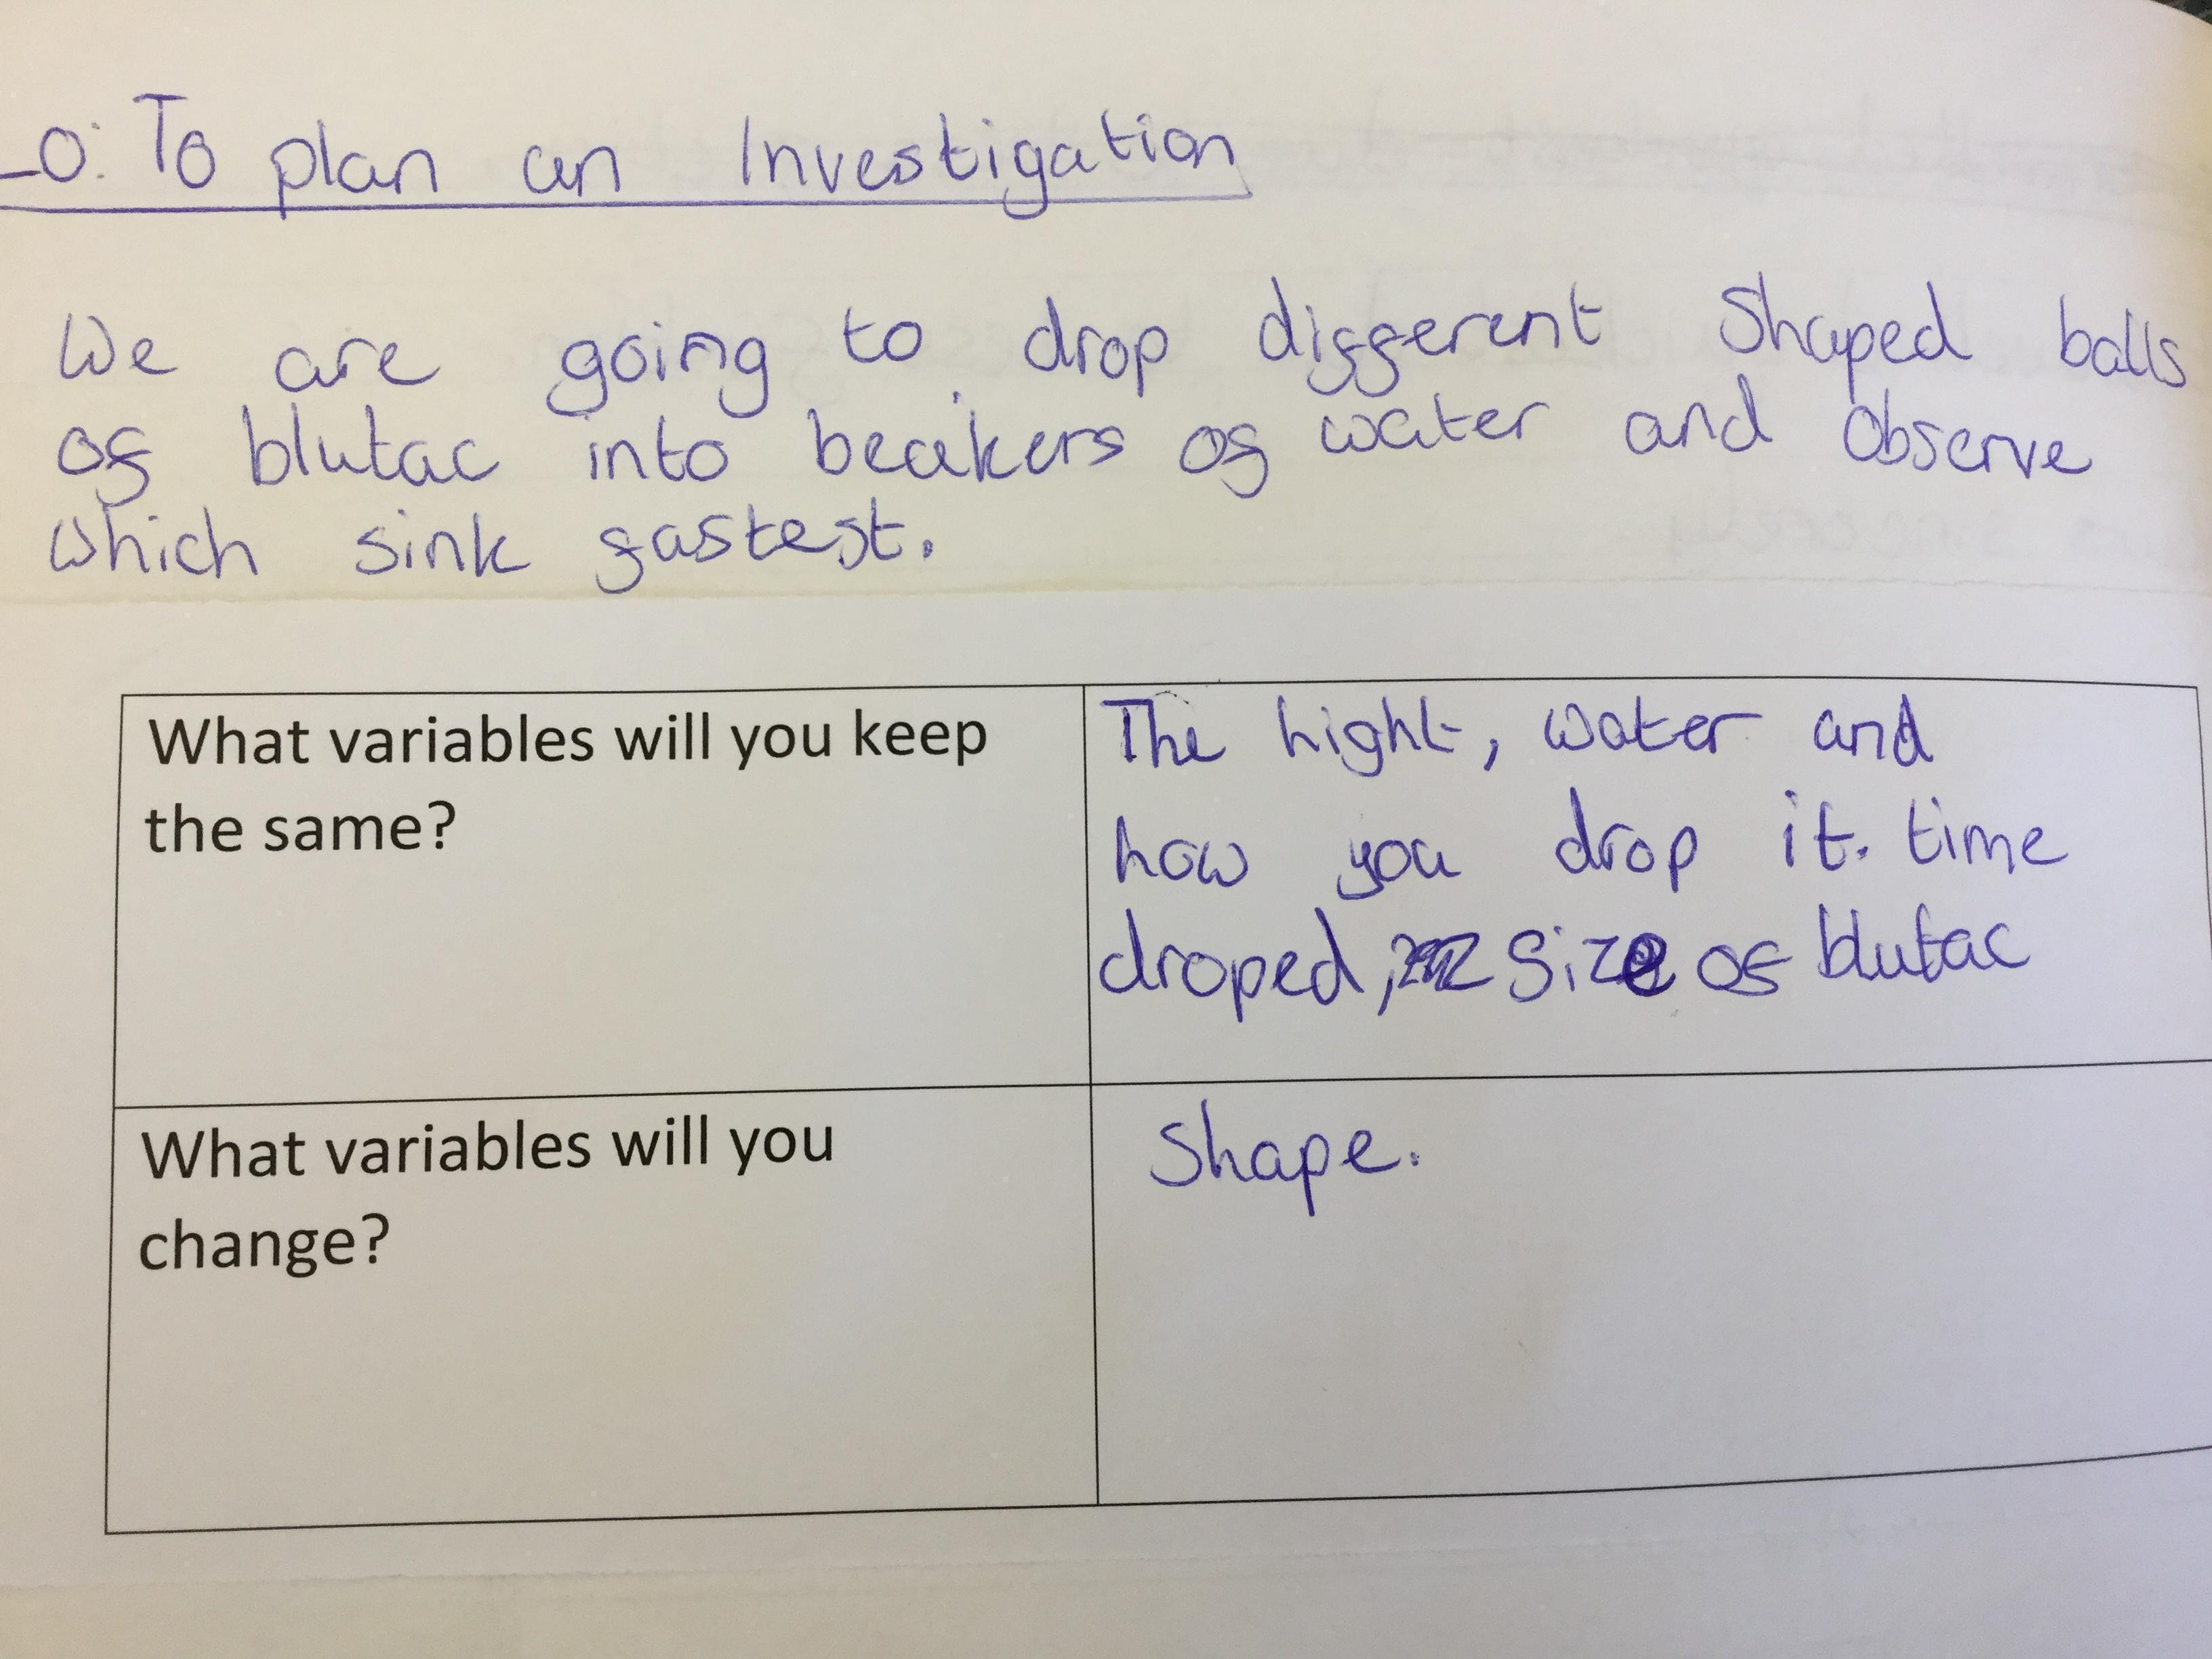 LO: To plan an Investigation
We are going to drop different Shaped balls
of blutac into beakers of water and observe
which sink fastest.
What variables will you keep
the same?
The hight, water and
how you drop it. time
droped, size of blutac
What variables will you
change?
Shape.